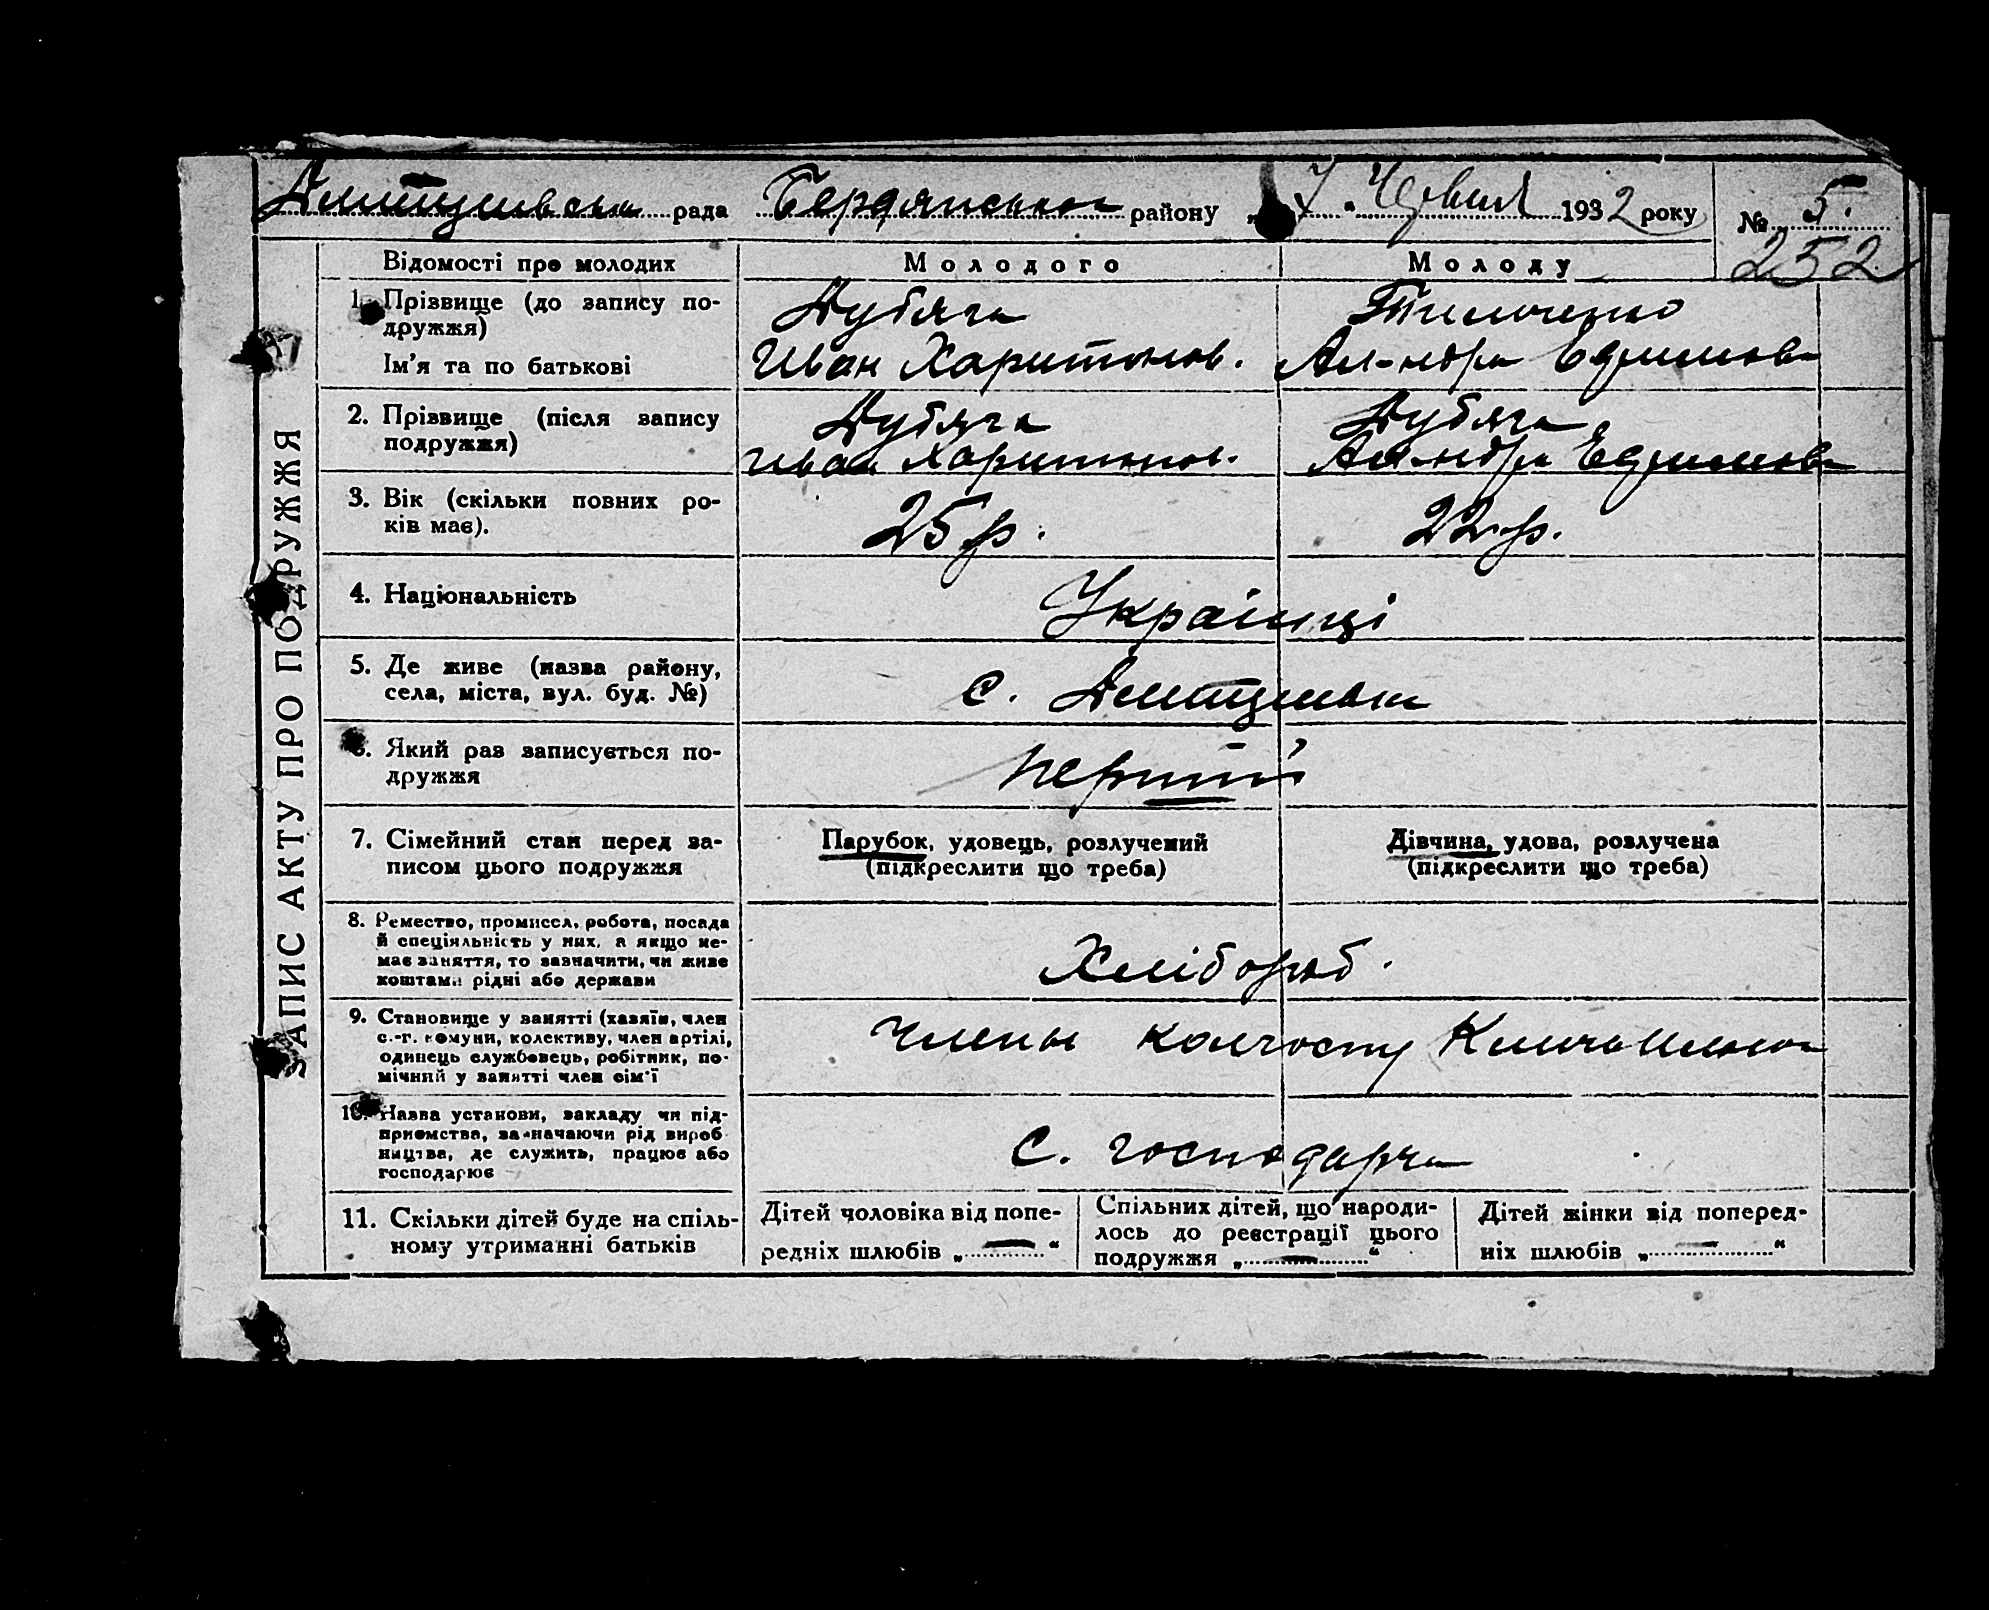 рада Бердянської району „7“ Червня 1932 року № 5.
252
ЗАПИС АКТУ ПРО ПОДРУЖЖЯ
Відомості про молодих
Молодого
Молоду
1. Прізвище (до запису по-
дружжя)
Ім’я та по батькові
Дубяга
Иван Харитонов.
Тимченко
Ал-ндра Ефимов
2. Прізвище (після запису
подружжя)
Дубяга
Иван Харитонов.
Дубяга
Ал-ндра Ефимов
3. Вік (скільки повних ро-
ків має).
25 р.
22 р.
4. Національність
Українці
5. Де живе (назва району,
села, міста, вул. буд. №)
с.
6. Який раз записується по-
дружжя
перший
7. Сімейний стан перед за-
писом цього подружжя
Парубок, удовець, розлучений
(підкреслити що треба)
Дівчина, удова, розлучена
(підкреслити що треба)
8. Ремество, промисел, робота, посада
й спеціяльність у них, а якщо не-
має заняття, то зазначити, чи живе
коштами рідні або держави
Хлібороб.
9. Становище у занятті (хазяїн, член
с.-г. комуни, колективу, член артілі,
одинець службовець, робітник, по-
мічний у занятті член сім’ї
Члены колгоспу
10. Назва установи, закладу чи під-
приємства, зазначаючи рід вироб-
ництва, де служить, працює або
господарює
С. господарча
11. Скільки дітей буде на спіль-
ному утриманні батьків
Дітей чоловіка від попе-
редніх шлюбів „—“
Спільних дітей, що народи-
лось до реєстрації цього
подружжя „—“
Дітей жінки від поперед-
ніх шлюбів „—“